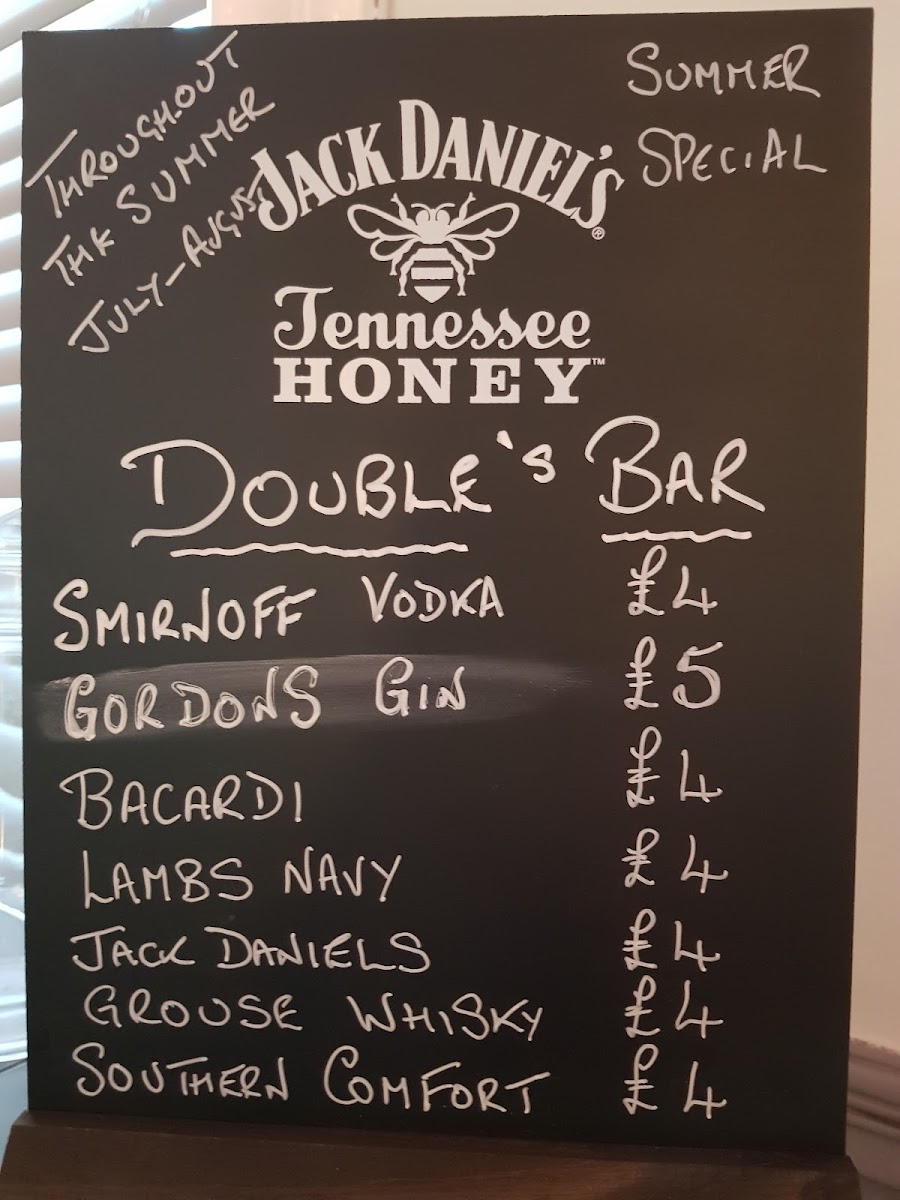 THROUGHOUT
THE SUMMER
JULY-AUGUST
SUMMER
SPECIAL
JACK DANIEL'S®
Tennessee
HONEY™
DOUBLE'S BAR
SMIRNOFF VODKA £4
GORDONS GIN £5
BACARDI £4
LAMBS NAVY £4
JACK DANIELS £4
GROUSE WHISKY £4
SOUTHERN COMFORT £4